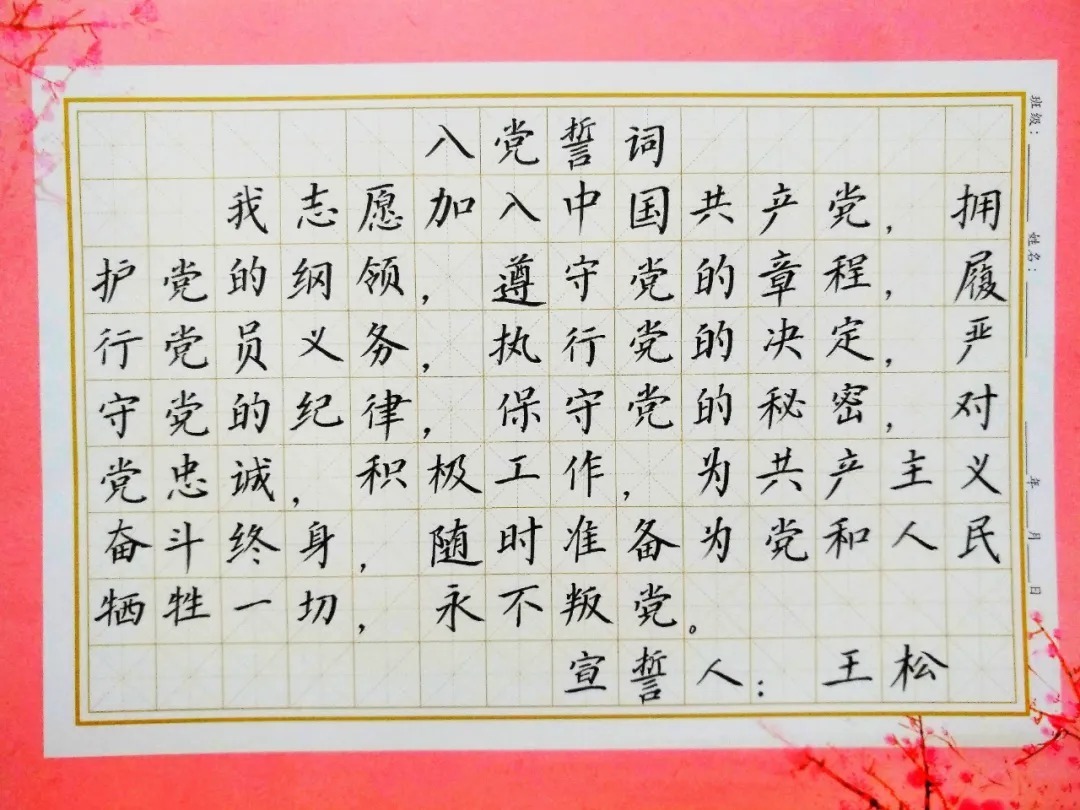 入党誓词
我志愿加入中国共产党，拥
护党的纲领，遵守党的章程，履
行党员义务，执行党的决定，严
守党的纪律，保守党的秘密，对
党忠诚，积极工作，为共产主义
奋斗终身，随时准备为党和人民
牺牲一切，永不叛党。
宣誓人：王松
班级：
姓名：
年 月 日